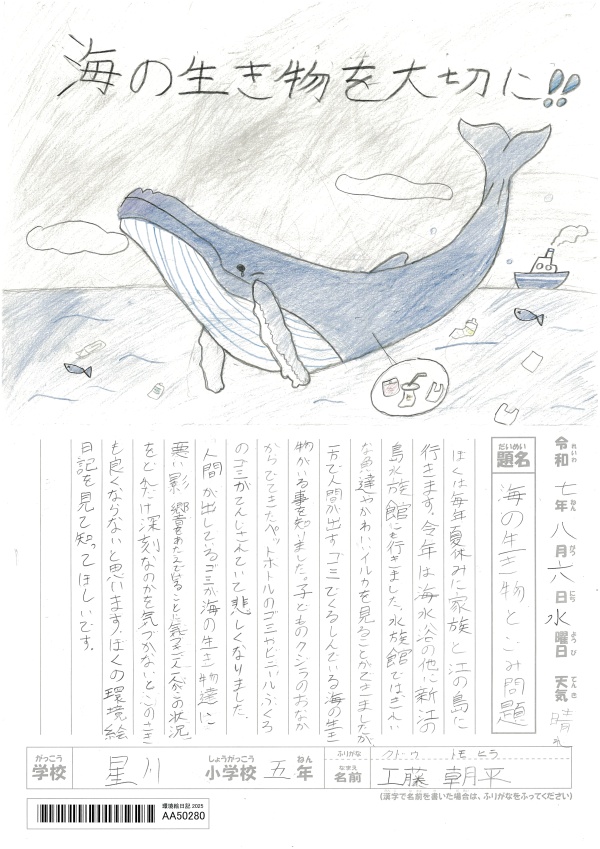 海の生き物を大切に!!
令和七年八月六日水曜日 天気晴れ
れいわ ねん がつ にち ようび てんき
だいめい
題名 海の生き物とごみ問題
ぼくは毎年夏休みに家族と江の島に
行きます。今年は海水浴の他に新江の
島水族館にも行きました。水族館ではきれい
な魚達やかわいいイルカを見ることができましたが、
一方で人間が出すゴミでくるしんでいる海の生き
物がいる事を知りました。子どものクジラのおなか
からでてきたペットボトルのゴミやビニールぶくろ
のゴミがてんじされていて悲しくなりました。
人間が出しているゴミが海の生き物達に
悪い影響をあたえていることに気づき
をどれだけ深刻なのかを気づかないとこのさき
も良くならないと思います。ぼくの環境絵
日記を見て知ってほしいです。
がっこう しょうがっこう ねん ふりがな クドウ トモヒラ
学校 星川 小学校 五年 なまえ 名前 工藤 朝平
(漢字で名前を書いた場合は、ふりがなをふってください)
環境絵日記 2025
AA50280